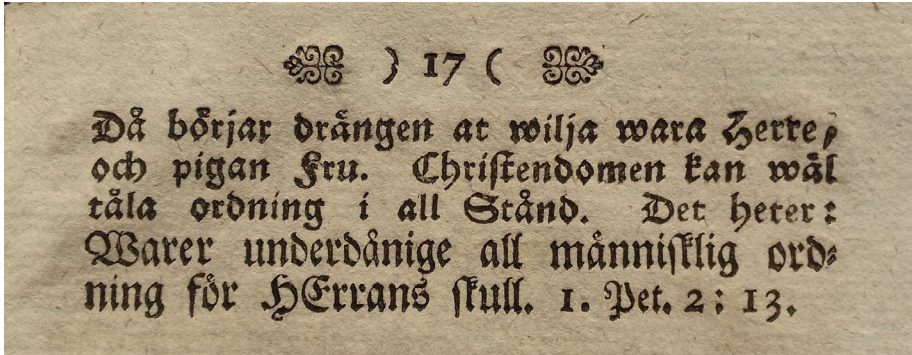 ) 17 (
Då börjar drängen at wilja wara Herre,
och pigan Fru. Christendomen kan wäl
tåla ordning i all Stånd. Det heter:
Warer underdånige all människlig ord-
ning för HErrans skull. 1. Pet. 2: 13.